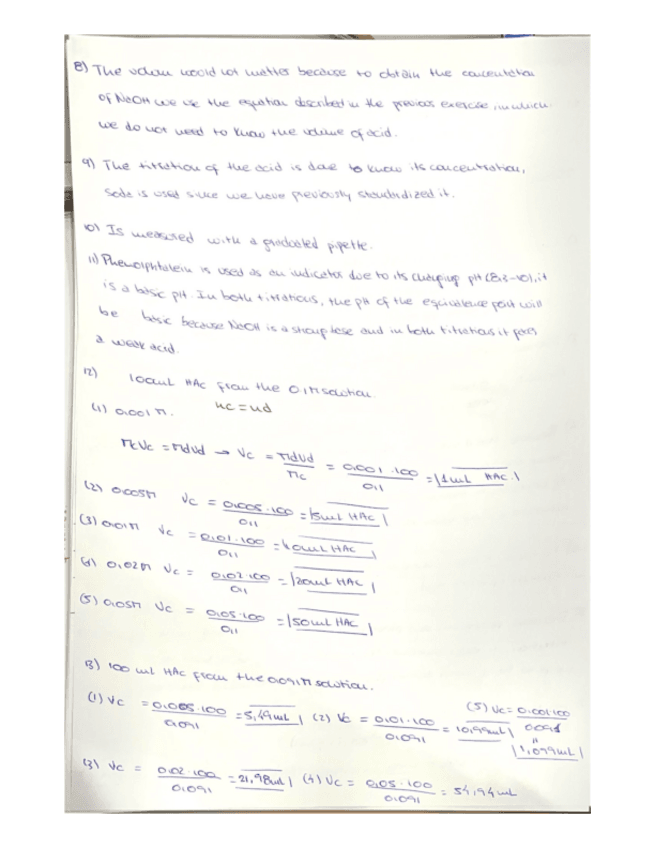 8) The volum would not matter because to obtain the concentration
of NaOH we use the equation described in the previous exercise, in which
we do not need to know the volume of acid.
9) The titration of the acid is done to know its concentration,
Soda is used since we have previously standardized it.
10) Is measured with a graduated pipette.
11) Phenolphtalein is used as an indicator due to its changing pH (8,3-10), it
is a basic pH. In both titrations, the pH of the equivalence point will
be basic because NaOH is a strong base and in both titrations it
a weak acid.
12) 100mL HAc from the 0,1M solution.
(1) 0,001 M. nc = nd
McVc = MdVd → Vc = MdVd / Mc = 0,001 · 100 / 0,1 = 1mL HAc.
(2) 0,005M Vc = 0,005 · 100 / 0,1 = 5mL HAc
(3) 0,01M Vc = 0,01 · 100 / 0,1 = 10mL HAc
(4) 0,02M Vc = 0,02 · 100 / 0,1 = 20mL HAc
(5) 0,05M Vc = 0,05 · 100 / 0,1 = 50mL HAc
13) 100 mL HAc from the 0,091M solution.
(1) Vc = 0,005 · 100 / 0,091 = 5,49mL (2) Vc = 0,01 · 100 / 0,091 = 10,99mL (5) Vc = 0,001·100 / 0,091 = 1,099mL
(3) Vc = 0,02 · 100 / 0,091 = 21,98mL (4) Vc = 0,05 · 100 / 0,091 = 54,94 mL